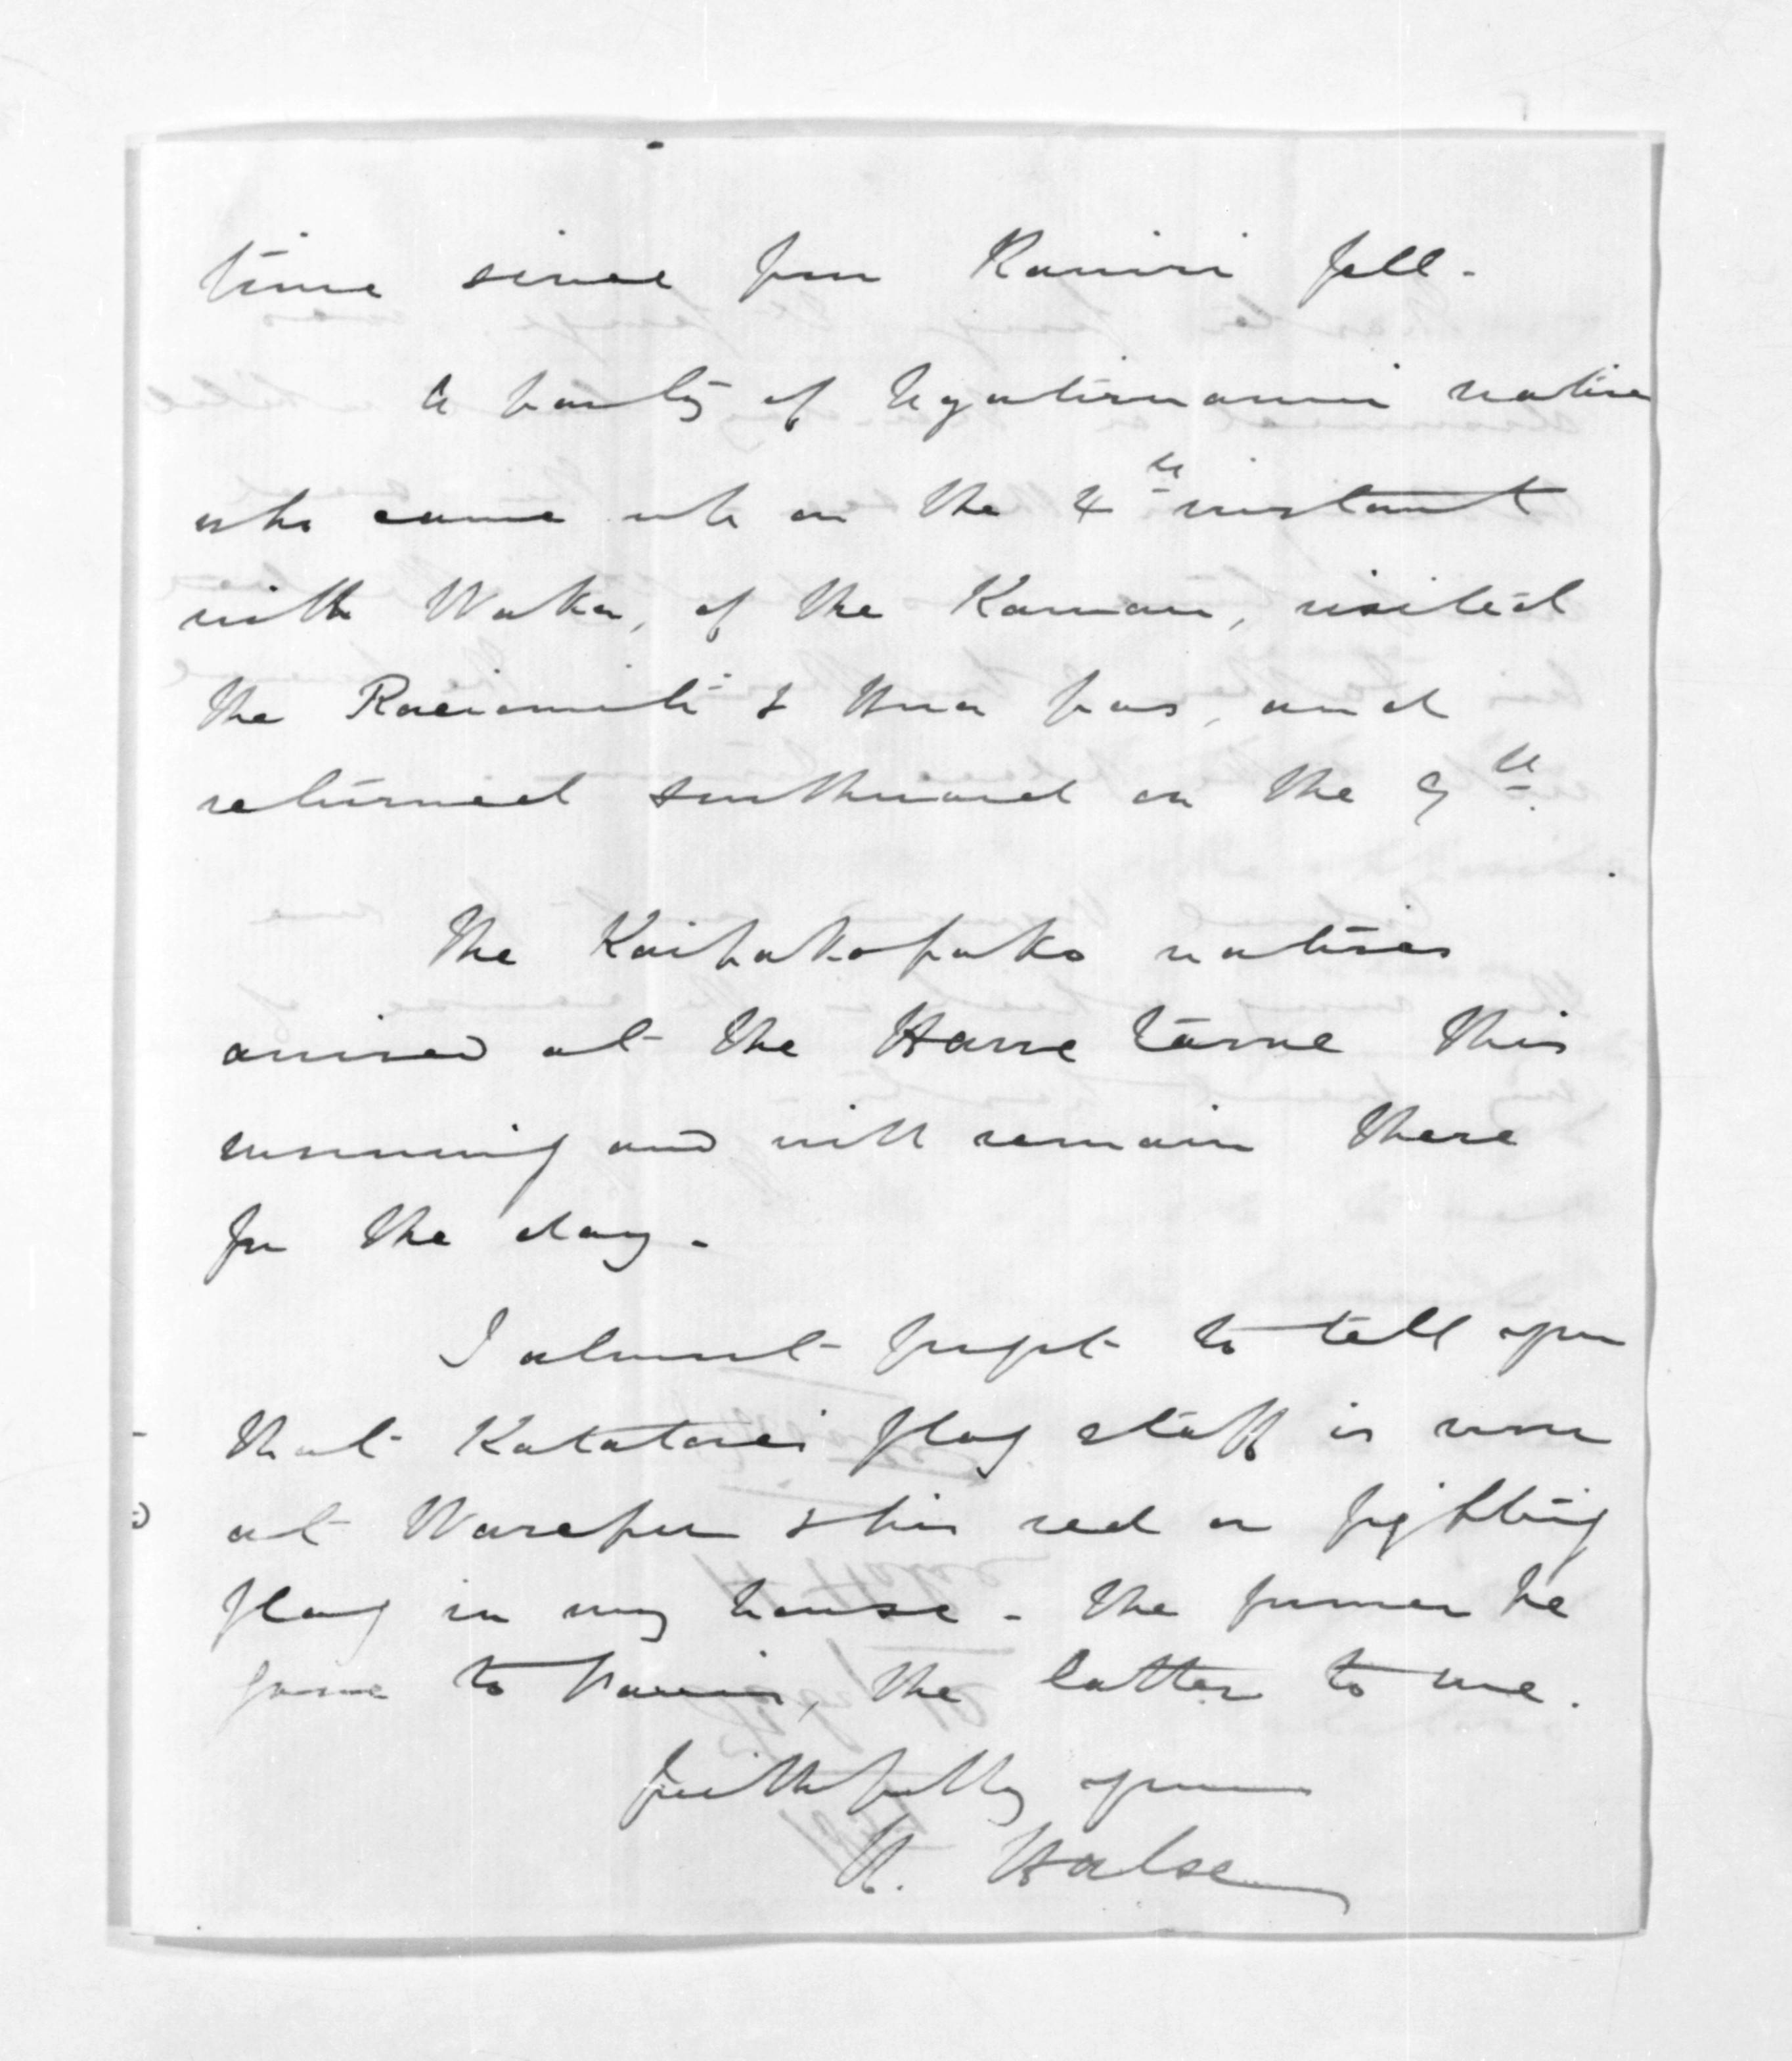 time since poor Rawiri fell.
A party of Ngatiruanui natives
who came up on the 4th instant
with Waka, of the Kaueau, visited
the Raeiomiti & Hua pas, and
returned southward on the 9th.
The Kaipakopako natives
arrived at the Hane tame this
morning and will remain there
for the day.
I almost forgot to tell you
that Katatores flag staff is now
at Warepu & his red or fighting
flag in my house - the former he
gave to Parris, the latter to me.
Faithfully yours
H. Halse